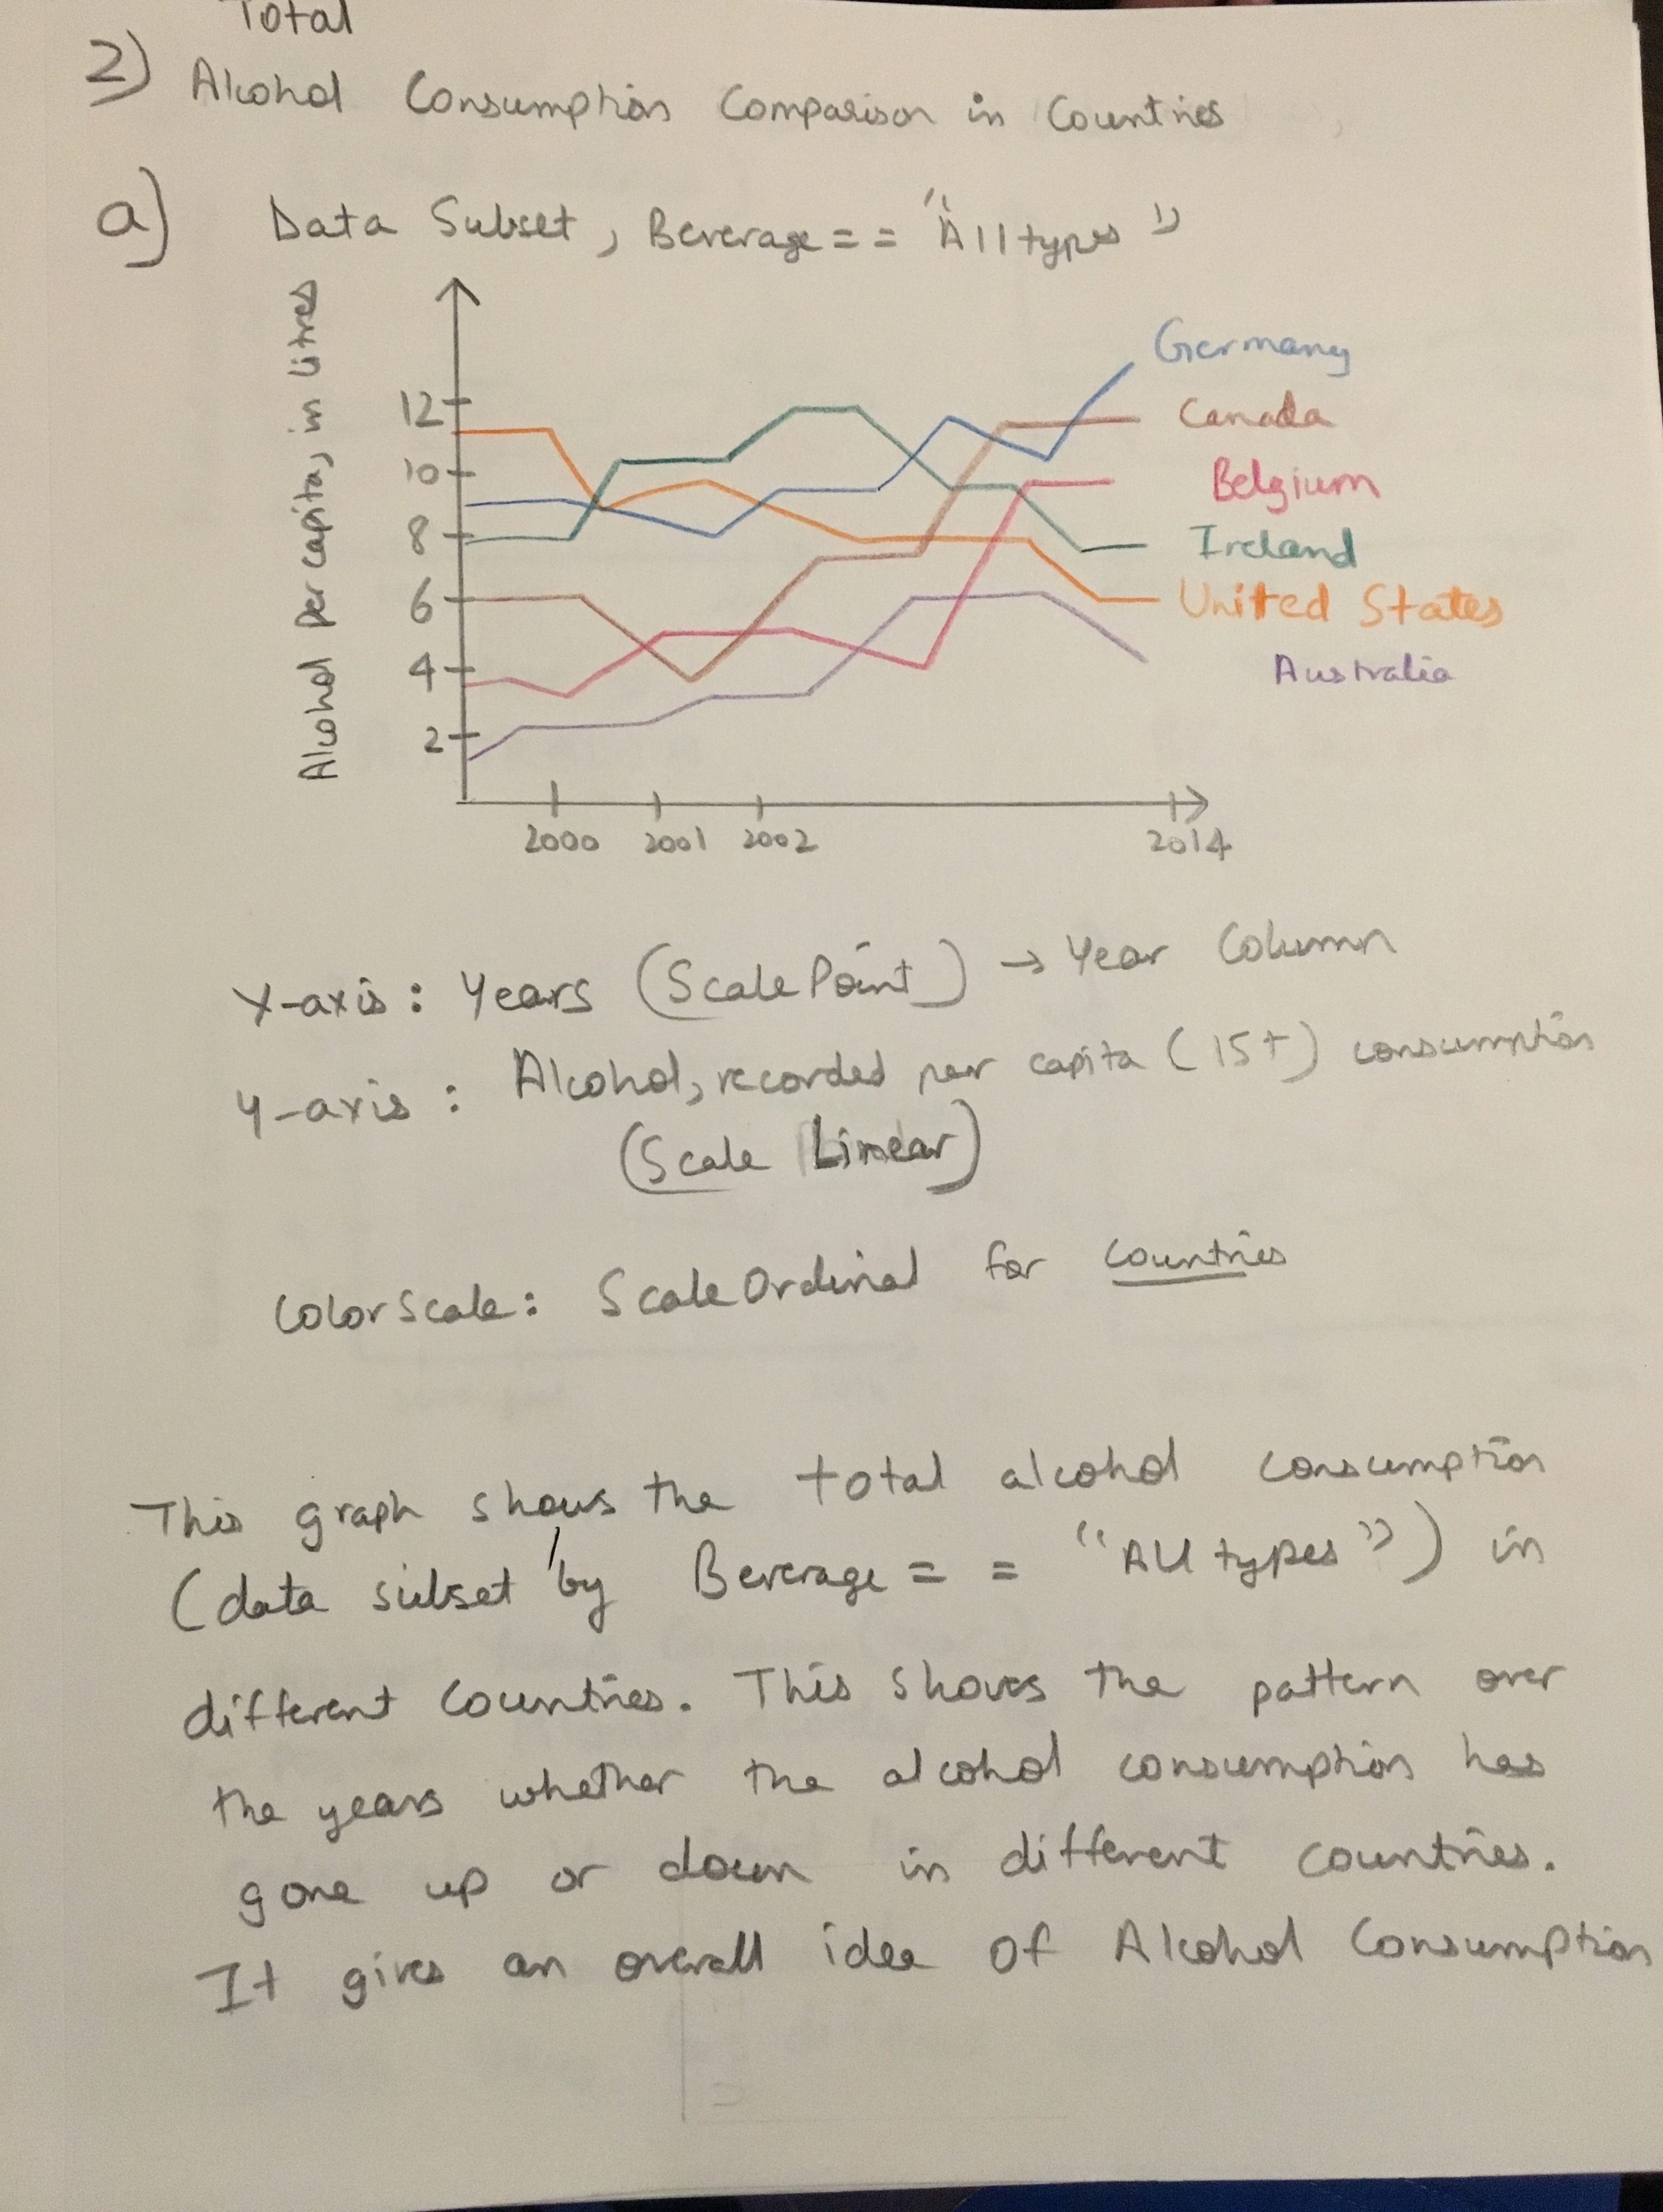 Total
2) Alcohol Consumption Comparison in Countries
a) Data Subset, Beverage == "All types"
Alcohol per capita, in litres
12
10
8
6
4
2
Germany
Canada
Belgium
Ireland
United States
Australia
2000 2001 2002 2014
X-axis: Years (Scale Point) → Year Column
Y-axis: Alcohol, recorded per capita (15+) consumption
(Scale Linear)
Color Scale: Scale Ordinal for Countries
This graph shows the total alcohol consumption
(data subset by Beverage == "All types") in
different countries. This shows the pattern over
the years whether the alcohol consumption has
gone up or down in different countries.
It gives an overall idea of Alcohol Consumption